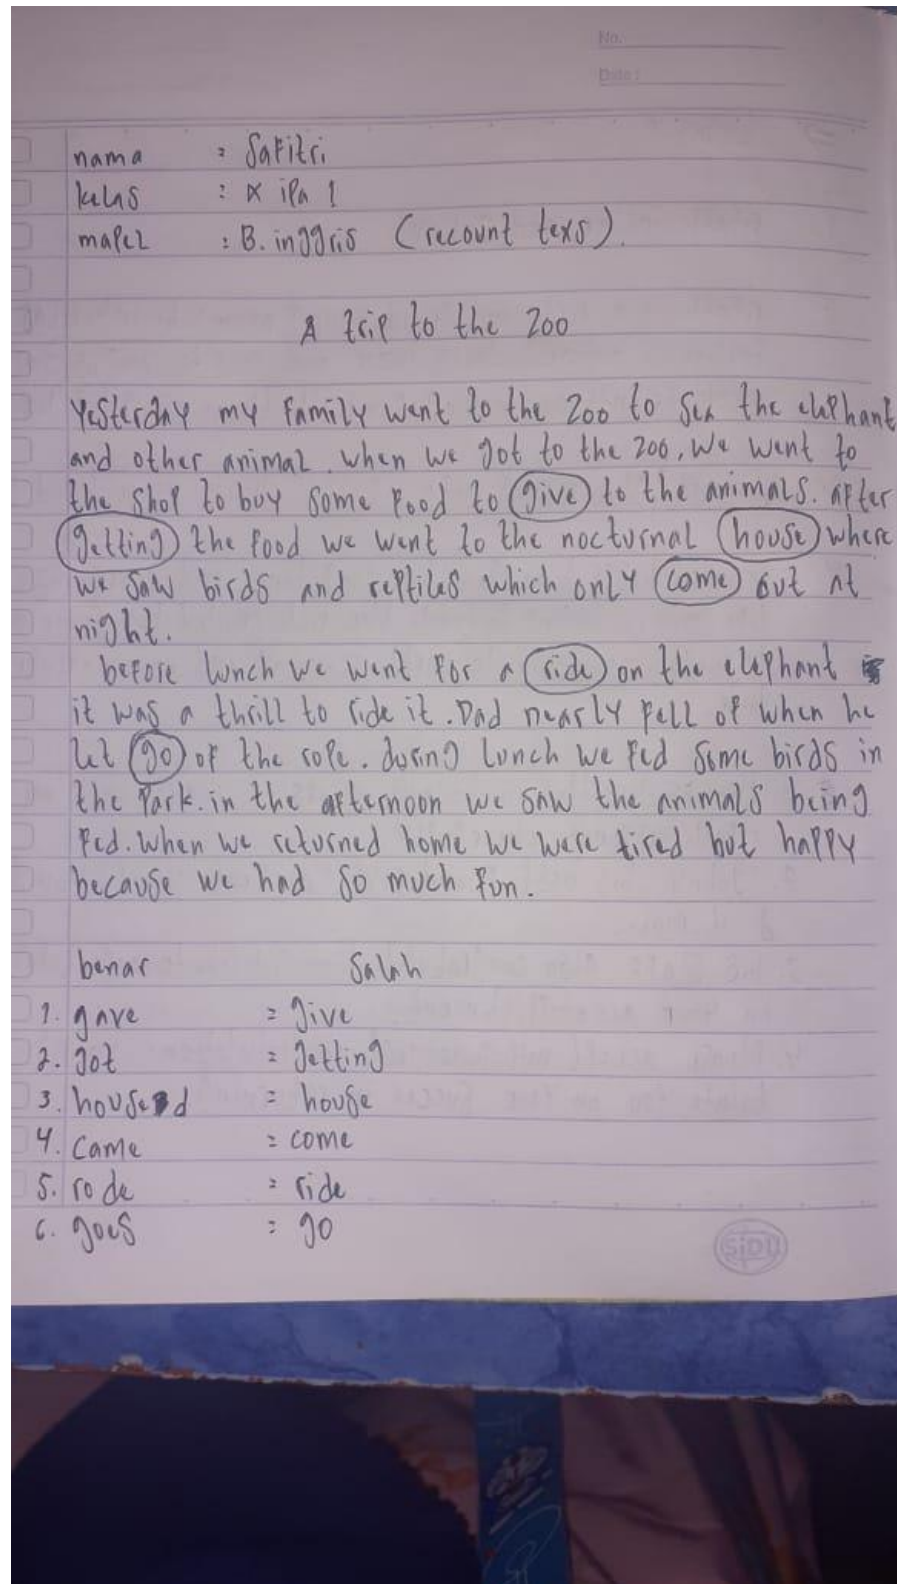 No.
Date:
nama : Safitri
kelas : X ipa 1
mapel : B. inggris (recount texs).
A trip to the zoo
Yesterday my family went to the zoo to see the elephant
and other animal. when we got to the zoo, we went to
the shop to buy some food to give to the animals. after
getting the food we went to the nocturnal house where
we saw birds and reptiles which only come out at
night.
before lunch we went for a ride on the elephant
it was a thrill to ride it. Dad nearly fell of when he
let go of the rope. during lunch we fed some birds in
the park. in the afternoon we saw the animals being
fed. When we returned home we were tired but happy
because we had so much fun.
benar Salah
1. gave = give
2. got = getting
3. housed = house
4. came = come
5. rode = ride
6. goes = go
SiDU